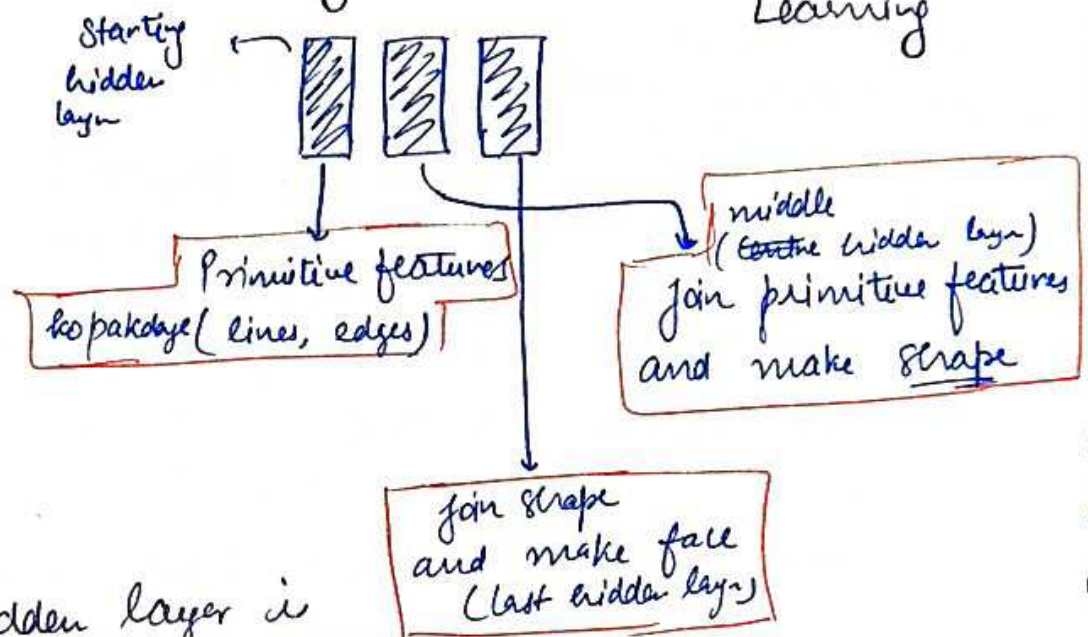 Learning
Starting
hidden
layer
Primitive features
ko pakdaye (lines, edges)
middle
(Centre hidden layer)
join primitive features
and make shape
join shape
and make face
(last hidden layer)
dden layer is